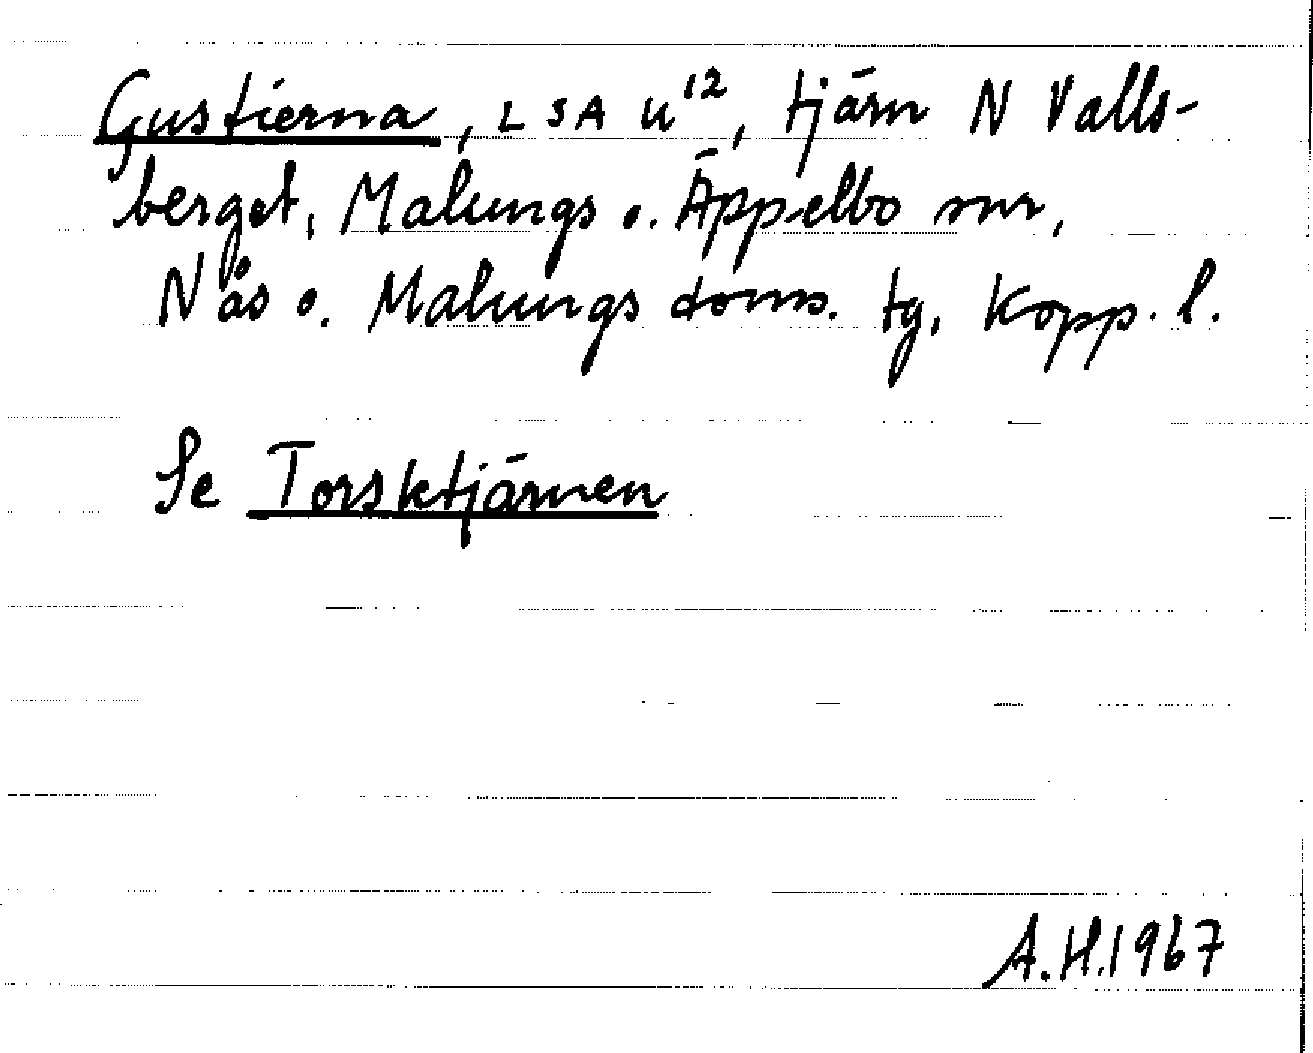 Gustierna, LSA U¹², tjärn N Valls-
berget, Malungs o. Äppelbo snr,
Nås o. Malungs doms. tg. Kopp. l.
Se Torsktjärnen
A.H. 1967